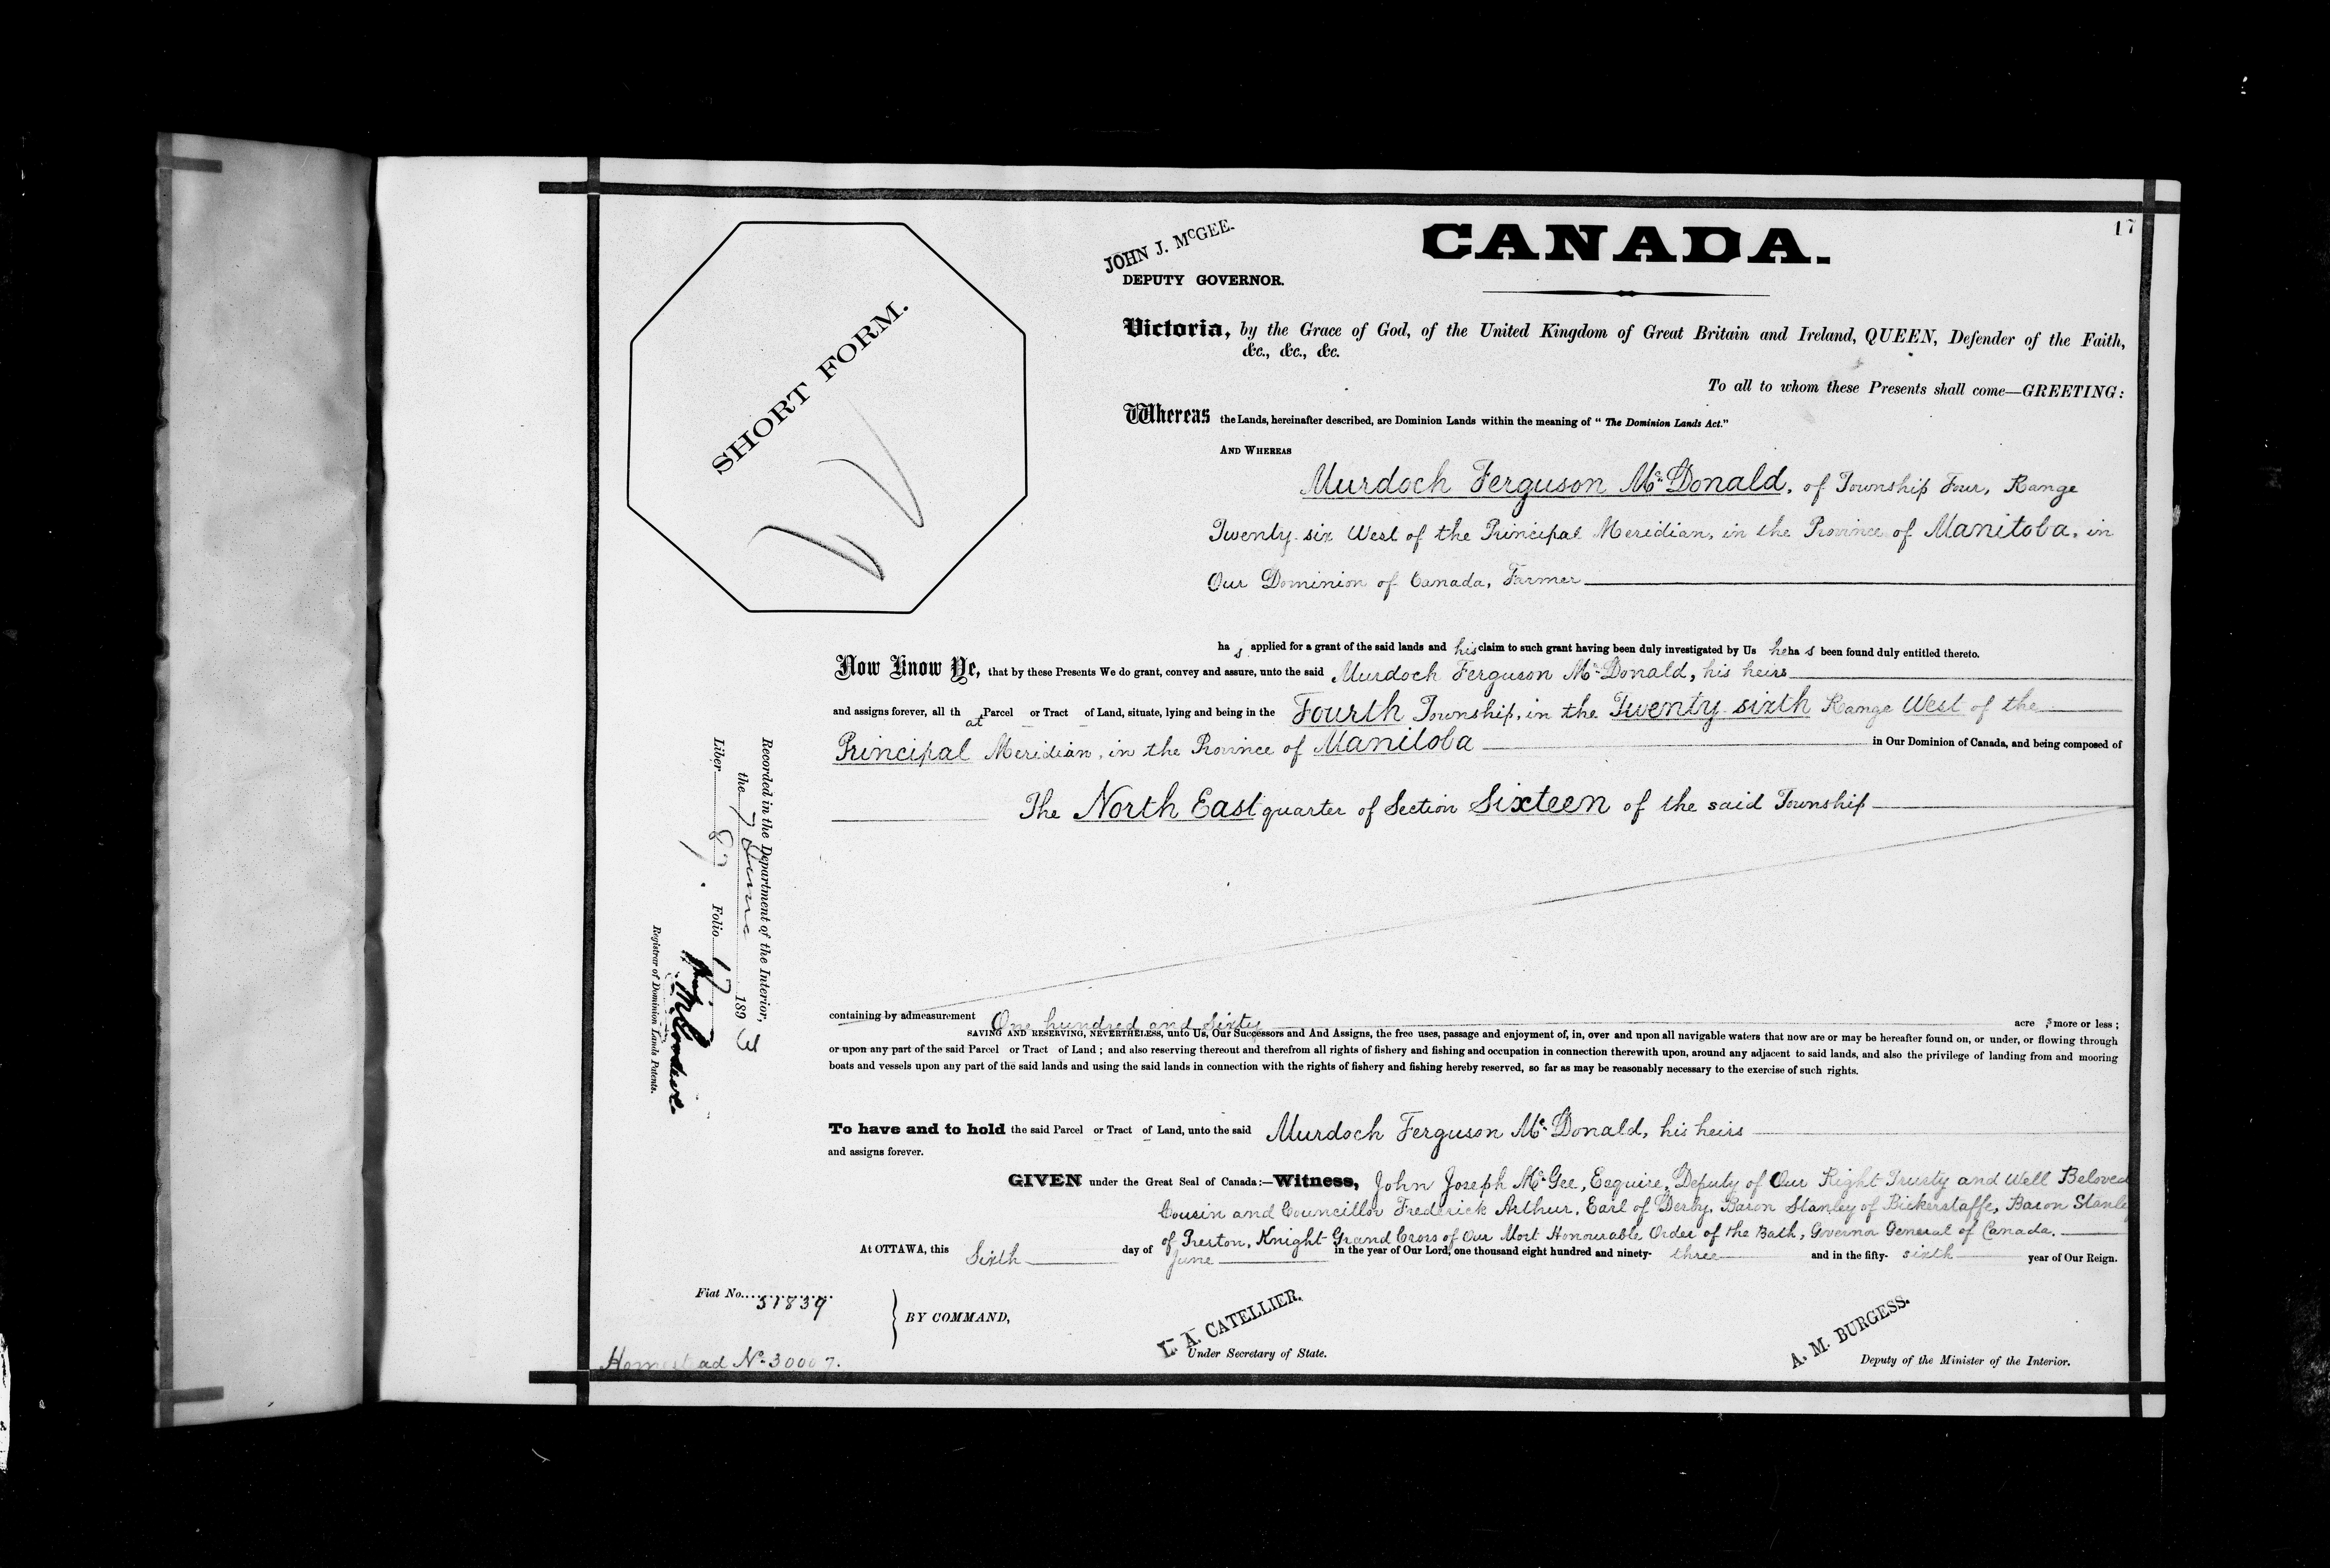 17
JOHN J. McGEE.
DEPUTY GOVERNOR.
CANADA.
SHORT FORM.
Victoria, by the Grace of God, of the United Kingdom of Great Britain and Ireland, QUEEN, Defender of the Faith,
&c., &c., &c.
To all to whom these Presents shall come—GREETING:
Whereas the Lands, hereinafter described, are Dominion Lands within the meaning of "The Dominion Lands Act."
AND WHEREAS
Murdoch Ferguson McDonald, of Township Four, Range
Twenty-six West of the Principal Meridian, in the Province of Manitoba, in
Our Dominion of Canada, Farmer
ha s applied for a grant of the said lands and his claim to such grant having been duly investigated by Us he ha s been found duly entitled thereto.
Now Know Ye, that by these Presents We do grant, convey and assure, unto the said Murdoch Ferguson McDonald, his heirs
and assigns forever, all th at Parcel or Tract of Land, situate, lying and being in the Fourth Township, in the Twenty-sixth Range West of the
Principal Meridian, in the Province of Manitoba in Our Dominion of Canada, and being composed of
The North East quarter of Section Sixteen of the said Township
containing by admeasurement One hundred and sixty acre s more or less;
SAVING AND RESERVING, NEVERTHELESS, unto Us, Our Successors and And Assigns, the free uses, passage and enjoyment of, in, over and upon all navigable waters that now are or may be hereafter found on, or under, or flowing through
or upon any part of the said Parcel or Tract of Land; and also reserving thereout and therefrom all rights of fishery and fishing and occupation in connection therewith upon, around any adjacent to said lands, and also the privilege of landing from and mooring
boats and vessels upon any part of the said lands and using the said lands in connection with the rights of fishery and fishing hereby reserved, so far as may be reasonably necessary to the exercise of such rights.
To have and to hold the said Parcel or Tract of Land, unto the said Murdoch Ferguson McDonald, his heirs
and assigns forever.
GIVEN under the Great Seal of Canada:—Witness, John Joseph McGee, Esquire, Deputy of Our Right Trusty and Well Beloved
Cousin and Councillor Frederick Arthur, Earl of Derby, Baron Stanley of Bickerstaffe, Baron Stanley
of Preston, Knight Grand Cross of Our Most Honourable Order of the Bath, Governor General of Canada.
At OTTAWA, this Sixth day of June in the year of Our Lord, one thousand eight hundred and ninety- three and in the fifty- sixth year of Our Reign.
Fiat No. 51839
BY COMMAND,
L. A. CATELLIER.
Under Secretary of State.
A. M. BURGESS.
Deputy of the Minister of the Interior.
Homestead No. 30007.
Recorded in the Department of the Interior,
the 7 June 1893
Liber 87. Folio 17
Registrar of Dominion Lands Patents.